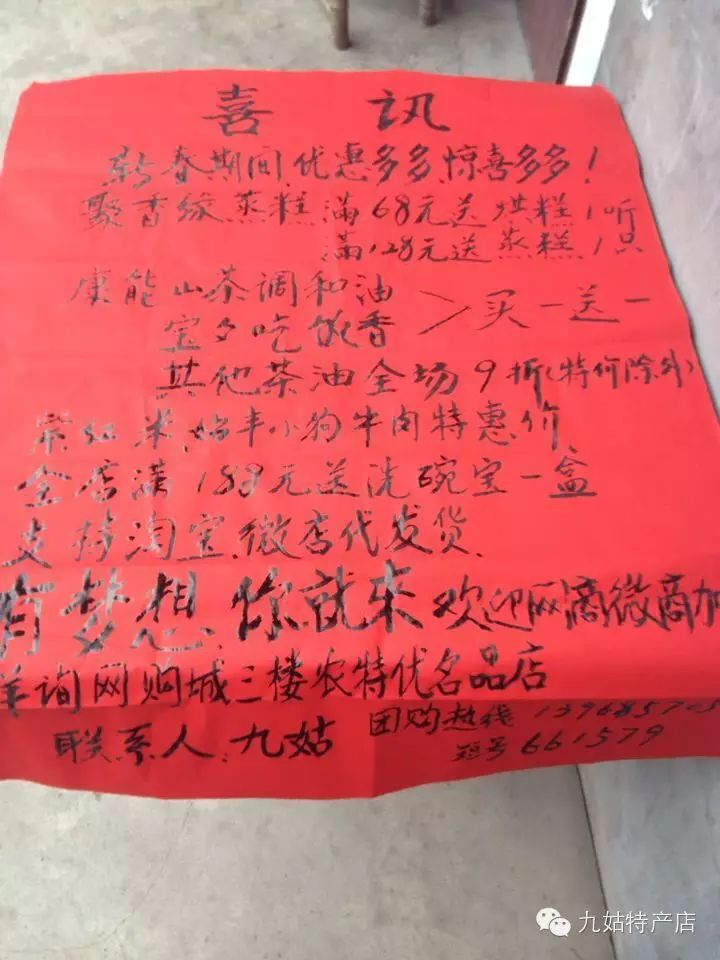 喜讯
新春期间优惠多多,惊喜多多!
聚香缘蒸糕满68元送烘糕1听
满128元送蒸糕1只
康能山茶调和油
宝夕吃饭香
>买一送一
其他茶油全场9折(特价除外)
紫红米,始丰小狗牛肉特惠价
全店满188元送洗碗宝一盒
支持淘宝,微店代发货
有梦想,你就来欢迎网商微商加
详询网购城三楼农特优名品店
联系人:九姑
团购热线139685705
短号661579
九姑特产店